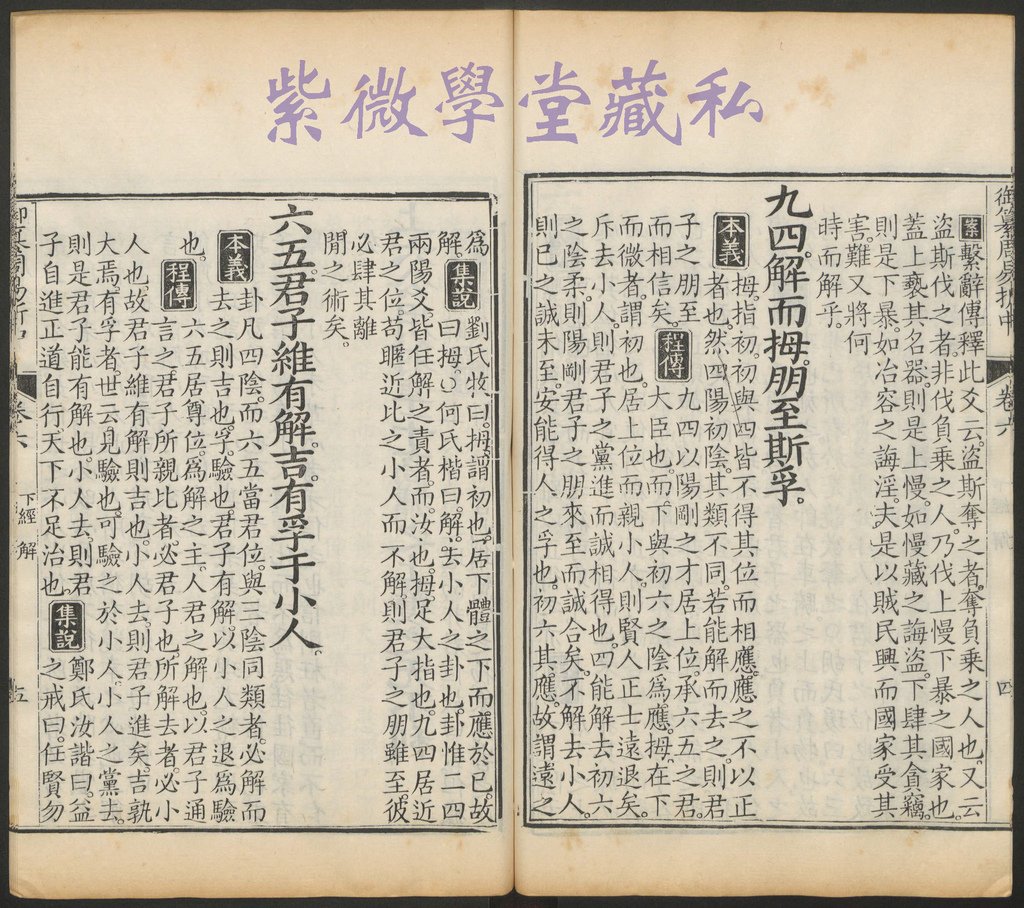 紫微學堂藏私
御纂周易折中 卷六 四
案 繫辭傳釋此爻云。盜斯奪之者。奪負乘之人也。又云
盜斯伐之者。非伐負乘之人。乃伐上慢下暴之國家也。
蓋上褻其名器。則是上慢。如慢藏之誨盜。下肆其貪竊。
則是下暴。如冶容之誨淫。夫是以賊民興而國家受其
害。難又將何
時而解乎。
九四。解而拇。朋至斯孚。
本義 拇。指初。初與四皆不得其位而相應。應之不以正
者也。然四陽初陰。其類不同。若能解而去之。則君
子之朋至 程傳 九四以陽剛之才。居上位。承六五之君。
而相信矣。 大臣也。而下與初六之陰爲應。拇。在下
而微者。謂初也。居上位而親小人。則賢人正士遠退矣。
斥去小人。則君子之黨進而誠相得也。四能解去初六
之陰柔。則陽剛君子之朋來至而誠合矣。不解去小人。
則已之誠未至。安能得人之孚也。初六其應。故謂遠之
爲 劉氏牧曰。拇。謂初也。居下體之下而應於已。故
解。 集說 曰拇。○何氏楷曰。解。去小人之卦也。卦惟二四
兩陽爻。皆任解之責者。而。汝也。拇。足大指也。九四居近
君之位。苟暱近比之小人而不解。則君子之朋雖至。彼
必肆其離
閒之術矣。
六五。君子維有解。吉。有孚于小人。
本義 卦凡四陰。而六五當君位。與三陰同類者。必解而
去之則吉也。孚。驗也。君子有解。以小人之退爲驗
也。 程傳 六五居尊位。爲解之主。人君之解也。以君子通
言之。君子所親比者。必君子也。所解去者。必小
人也。故君子維有解則吉也。小人去。則君子進矣。吉孰
大焉。有孚者。世云見驗也。可驗之於小人。小人之黨去。
則是君子能有解也。小人去。則君 集說 鄭氏汝諧曰。益
子自進。正道自行。天下不足治也。 之戒曰。任賢勿
卷六 下經 解 五